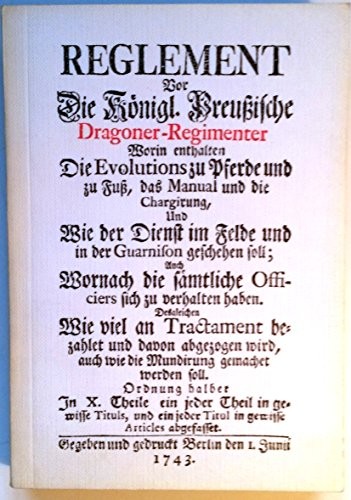 REGLEMENT
Vor
Die Königl. Preußische
Dragoner-Regimenter
Worin enthalten
Die Evolutions zu Pferde und
zu Fuß, das Manual und die
Chargirung,
Und
Wie der Dienst im Felde und
in der Guarnison geschehen soll;
Auch
Wornach die sämtliche Offi-
ciers sich zu verhalten haben.
Desgleichen
Wie viel an Tractament be-
zahlet und davon abgezogen wird,
auch wie die Mundirung gemachet
werden soll.
Ordnung halber
In X. Theile ein jeder Theil in ge-
wisse Tituls, und ein jeder Titul in gewisse
Articles abgefasset.
Gegeben und gedruckt Berlin den 1. Junii
1743.